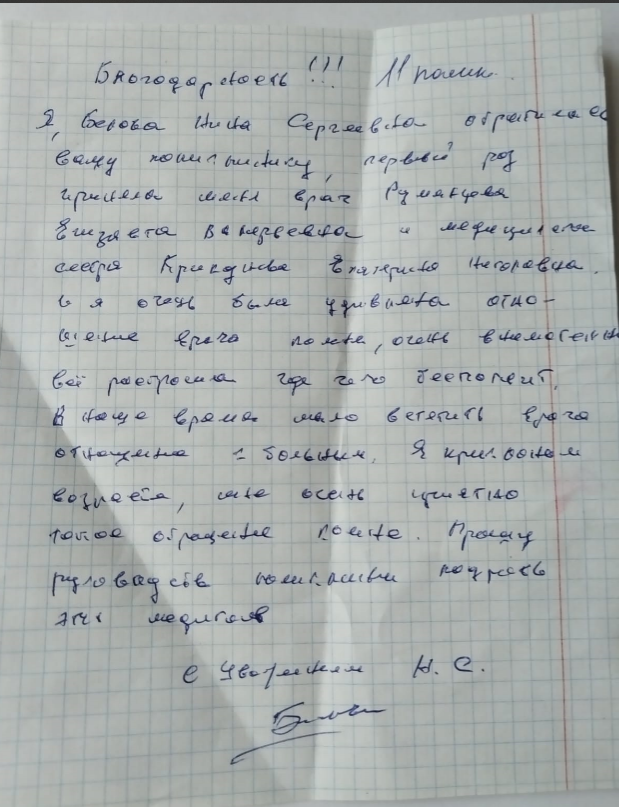 Благодарность !!! 11 полик.
Я, Белова Нина Сергеевна обратилась
вашу поликлинику, первый раз
приняла меня врач Румянцева
Елизавета Валерьевна и медицинская
сестра Екатерина Игоревна.
и я очень была удивлена отно-
шение врача ко мне, очень внимательна
всё расспросила где чего беспокоит.
В наше время мало встетить врача
отнащение к больным. Я преклоном
возрасте, мне осень приятно
такое обращение ко мне. Прошу
руководств поликлиники
этих медиков
С Уважением Н. С.